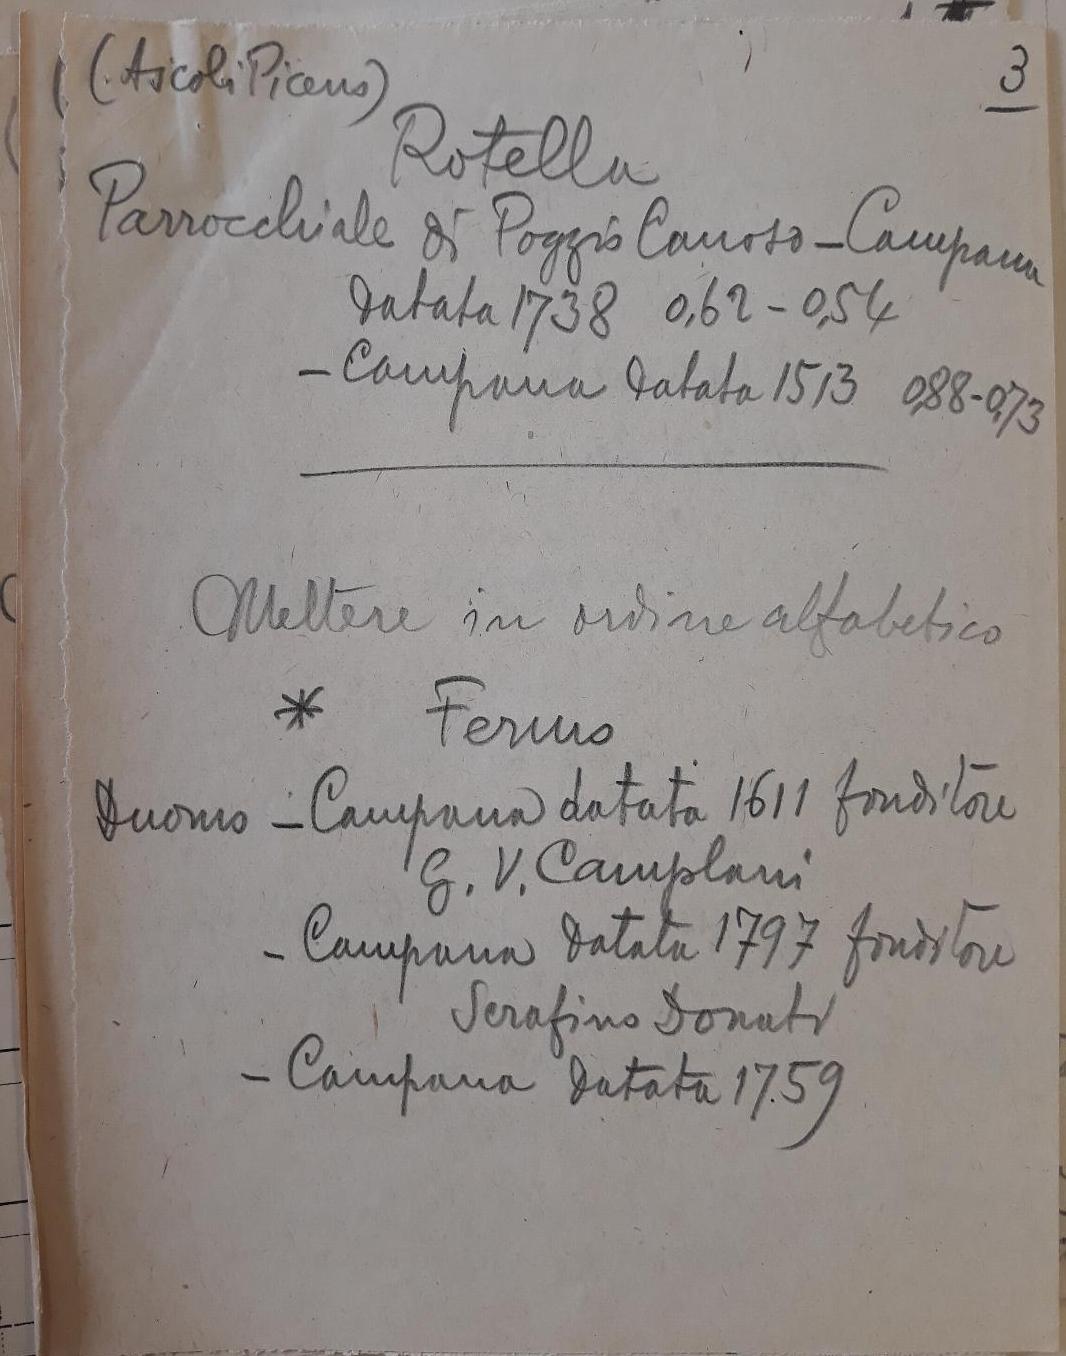 (Ascoli Piceno)
3
Rotella
Parrocchiale di Poggio Canoso - Campana
datata 1738 0,62 - 0,54
- Campana datata 1513 0,88 - 0,73
Mettere in ordine alfabetico
* Fermo
Duomo - Campana datata 1611 fonditore
G. V. Camplani
- Campana datata 1797 fonditore
Serafino Donati
- Campana datata 1759